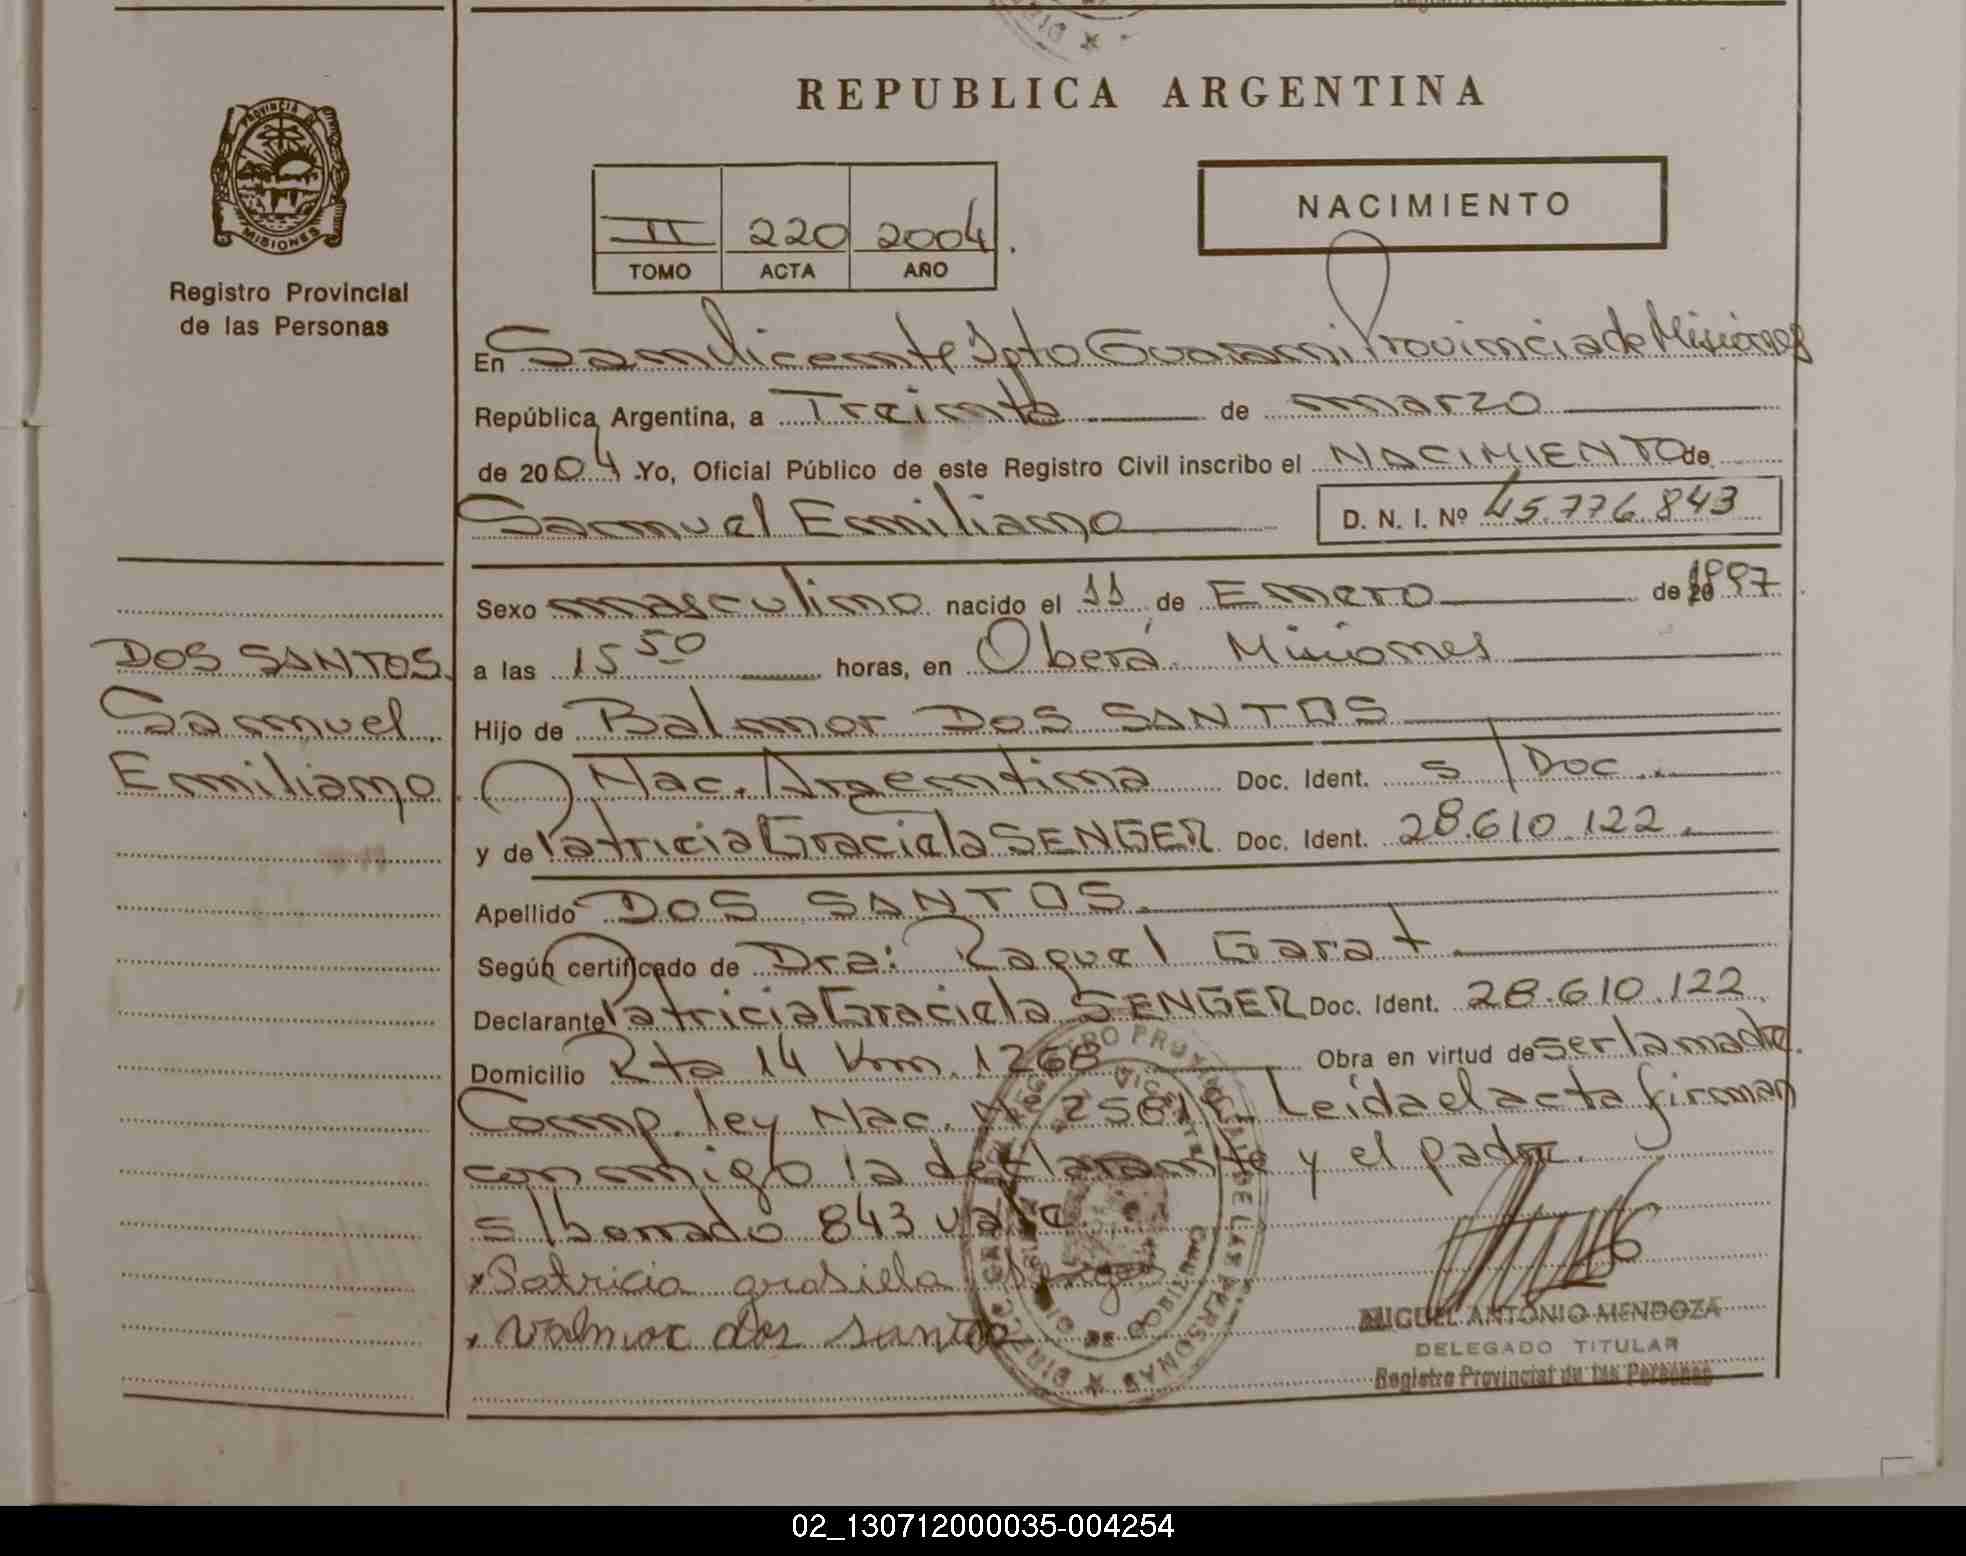 REPUBLICA ARGENTINA
PROVINCIA DE
MISIONES
Registro Provincial
de las Personas
II 220 2004.
TOMO ACTA AÑO
NACIMIENTO
En San Vicente Dpto Guarani Provincia de Misiones
República Argentina, a Treinta de marzo
de 2004 Yo, Oficial Público de este Registro Civil inscribo el NACIMIENTO de
Samuel Emiliano D. N. I. Nº 45.776.843
Sexo masculino nacido el 11 de Enero de 1997
DOS SANTOS
Samuel
Emiliano
a las 15 50 horas, en Oberá Misiones
Hijo de Balmor DOS SANTOS
Nac. Argentina Doc. Ident. s/Doc.
y de Patricia Graciela SENGER Doc. Ident. 28.610.122.
Apellido DOS SANTOS.
Según certificado de Dra: Raquel Garat
Declarante Patricia Graciela SENGER Doc. Ident. 28.610.122
Domicilio Rta 14 Km. 1268 Obra en virtud de ser la madre.
Comp. ley Nac. Leida el acta firman
conmigo la declarante y el padre.
s/borrado 843 vale.
Patricia grasiela senger
Valmor dos santos
MIGUEL ANTONIO MENDOZA
DELEGADO TITULAR
Registro Provincial de las Personas
02_130712000035-004254